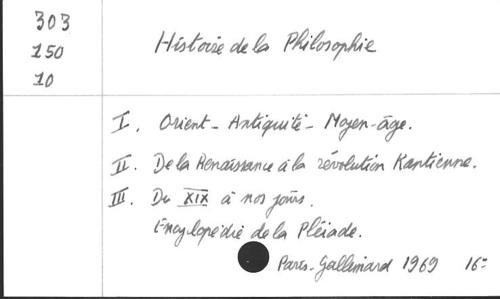 303
150
10
Histoire de la Philosophie
I. Orient - Antiquité - Moyen-âge.
II. De la Renaissance à la révolution Kantienne.
III. Du XIX à nos jours.
Encyclopédie de la Pléiade.
Paris-Gallimard 1969 16=